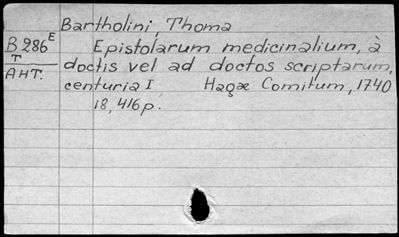 Bartholini, Thoma
B 286 E
T
AHT.
Epistolarum medicinalium, à
doctis vel ad doctos scriptarum,
centuria I Hagæ Comitum, 1740
18, 416p.